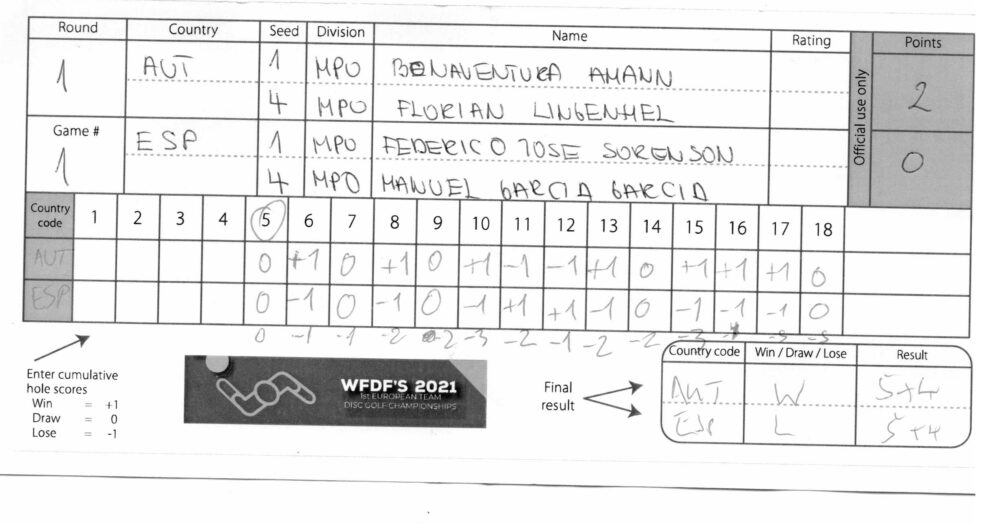 Round Country Seed Division Name Rating Official use only Points
1 AUT 1 MPO BONAVENTURA AMANN 2
4 MPO FLORIAN LINGENHEL
Game # 1 ESP 1 MPO FEDERICO JOSE SORENSON 0
4 MPO MANUEL GARCIA GARCIA
Country code 1 2 3 4 5 6 7 8 9 10 11 12 13 14 15 16 17 18
AUT 0 +1 0 +1 0 +1 -1 -1 +1 0 +1 +1 +1 0
ESP 0 -1 0 -1 0 -1 +1 +1 -1 0 -1 -1 -1 0
0 -1 -1 -2 -2 -3 -2 -1 -2 -2 -3 -4 -5 -5
Enter cumulative
hole scores
Win = +1
Draw = 0
Lose = -1
WFDF'S 2021
1st EUROPEAN TEAM
DISC GOLF CHAMPIONSHIPS
Final
result
Country code Win / Draw / Lose Result
AUT W 5+4
ESP L 5+4